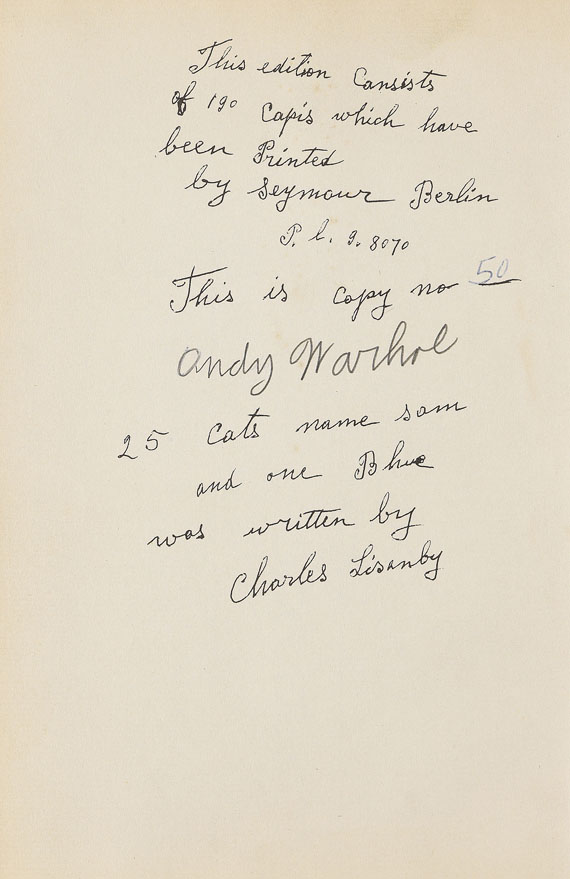 This edition Consists
of 190 Capis which have
been Printed
by Seymour Berlin
P. l. 9. 8070
This is copy no 50
Andy Warhol
25 Cats name sam
and one Blue
was written by
Charles Lisanby